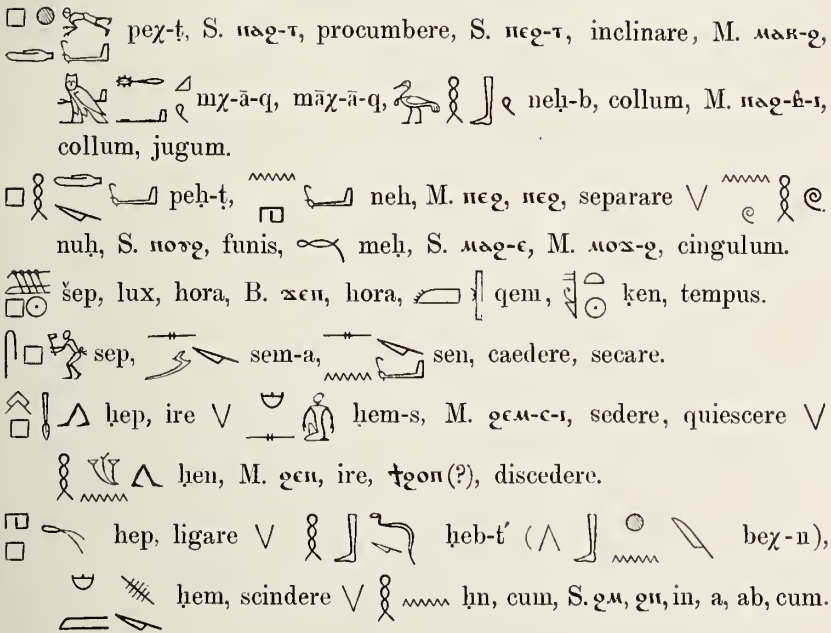 peχ-ṭ, S. ⲡⲁϩ-ⲧ, procumbere, S. ⲡⲉϩ-ⲧ, inclinare, M. ⲙⲁⲕ-ϩ,
mχ-ā-q, māχ-ā-q, neḥ-b, collum, M. ⲛⲁϩ-ⲃ-ⲓ,
collum, jugum.
peḥ-ṭ, neh, M. ⲡⲉϩ, ⲛⲉϩ, separare V
nuḥ, S. ⲛⲟⲩϩ, funis, meḥ, S. ⲙⲁϩ-ⲉ, M. ⲙⲟϫ-ϩ, cingulum.
šep, lux, hora, B. ϫⲉⲡ, hora, qem, ḳen, tempus.
sep, sem-a, sen, caedere, secare.
ḥep, ire V ḥem-s, M. ϩⲉⲙ-ⲥ-ⲓ, sedere, quiescere V
ḥen, M. ϩⲉⲛ, ire, ϯϩⲟⲛ (?), discedere.
hep, ligare V ḥeb-t′ (Λ beχ-n),
ḥem, scindere V ḥn, cum, S. ϩⲙ, ϩⲛ, in, a, ab, cum.